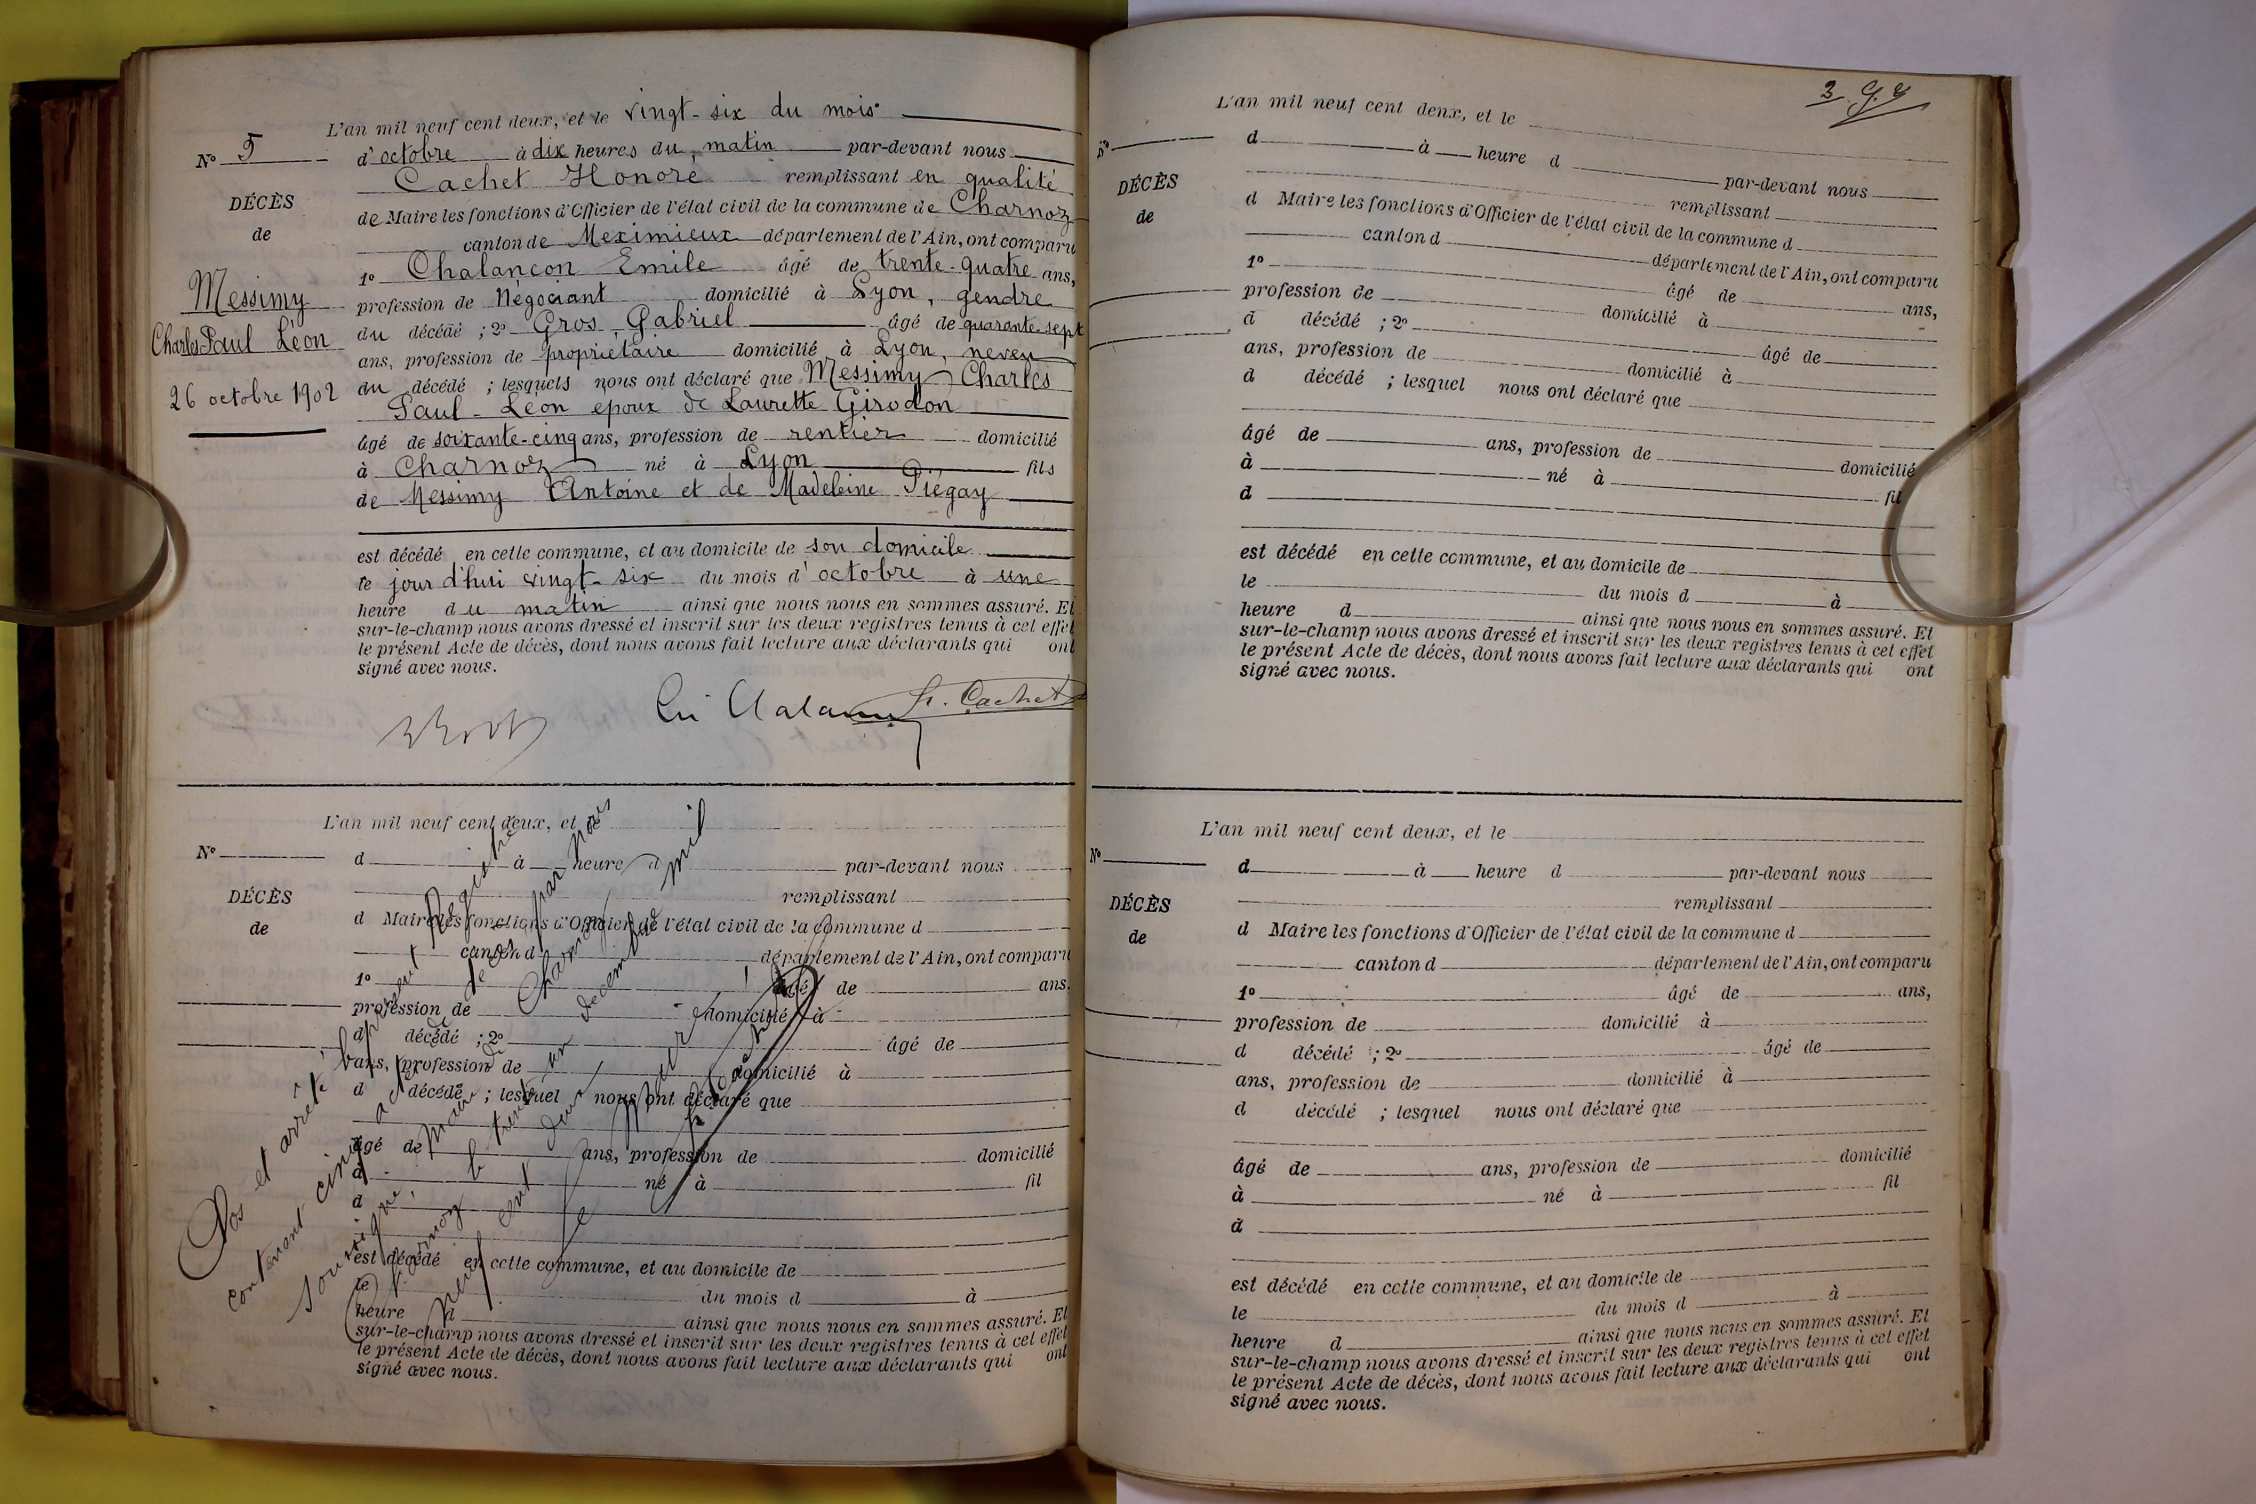 L'an mil neuf cent deux, et le vingt-six du mois
N° 5
d'octobre à dix heures du matin par-devant nous
Cachet Honoré remplissant en qualité
DÉCÈS
de
de Maire les fonctions d'Officier de l'état civil de la commune de Charnoz
canton de Meximieux département de l'Ain, ont comparu
1° Chalançon Emile âgé de trente-quatre ans,
Messimy
Charles Paul Léon
26 octobre 1902
profession de Négociant domicilié à Lyon, gendre
du décédé ; 2° Gros, Gabriel âgé de quarante sept
ans, profession de propriétaire domicilié à Lyon, neveu
du décédé ; lesquels nous ont déclaré que Messimy Charles
Paul-Léon époux de Laurette Girodon
âgé de soixante-cinq ans, profession de rentier domicilié
à Charnoz né à Lyon fils
de Messimy Antoine et de Madeleine Piégay
est décédé en cette commune, et au domicile de son domicile
le jour d'hui vingt-six du mois d'octobre à une
heure du matin ainsi que nous nous en sommes assuré. Et
sur-le-champ nous avons dressé et inscrit sur les deux registres tenus à cet effet
le présent Acte de décès, dont nous avons fait lecture aux déclarants qui ont
signé avec nous.
H. Cachet
L'an mil neuf cent deux, et le
N°
d à heure d par-devant nous
remplissant
DÉCÈS
de
d Maire les fonctions d'Officier de l'état civil de la commune d
canton d département de l'Ain, ont comparu
1° âgé de ans,
profession de domicilié à
d décédé ; 2° âgé de
ans, profession de domicilié à
d décédé ; lesquel nous ont déclaré que
âgé de ans, profession de domicilié
à né à fil
d
est décédé en cette commune, et au domicile de
le du mois d à
heure d ainsi que nous nous en sommes assuré. Et
sur-le-champ nous avons dressé et inscrit sur les deux registres tenus à cet effet
le présent Acte de décès, dont nous avons fait lecture aux déclarants qui ont
signé avec nous.
Clos et arrêté le présent Registre
contenant cinq actes de décès par nous
soussigné, maire de Charnoz
Charnoz le trente un décembre mil
neuf cent deux
3 G.G
L'an mil neuf cent deux, et le
N°
d à heure d par-devant nous
remplissant
DÉCÈS
de
d Maire les fonctions d'Officier de l'état civil de la commune d
canton d département de l'Ain, ont comparu
1° âgé de ans,
profession de domicilié à
d décédé ; 2° âgé de
ans, profession de domicilié à
d décédé ; lesquel nous ont déclaré que
âgé de ans, profession de domicilié
à né à fil
d
est décédé en cette commune, et au domicile de
le du mois d à
heure d ainsi que nous nous en sommes assuré. Et
sur-le-champ nous avons dressé et inscrit sur les deux registres tenus à cet effet
le présent Acte de décès, dont nous avons fait lecture aux déclarants qui ont
signé avec nous.
L'an mil neuf cent deux, et le
N°
d à heure d par-devant nous
remplissant
DÉCÈS
de
d Maire les fonctions d'Officier de l'état civil de la commune d
canton d département de l'Ain, ont comparu
1° âgé de ans,
profession de domicilié à
d décédé ; 2° âgé de
ans, profession de domicilié à
d décédé ; lesquel nous ont déclaré que
âgé de ans, profession de domicilié
à né à fil
d
est décédé en cette commune, et au domicile de
le du mois d à
heure d ainsi que nous nous en sommes assuré. Et
sur-le-champ nous avons dressé et inscrit sur les deux registres tenus à cet effet
le présent Acte de décès, dont nous avons fait lecture aux déclarants qui ont
signé avec nous.